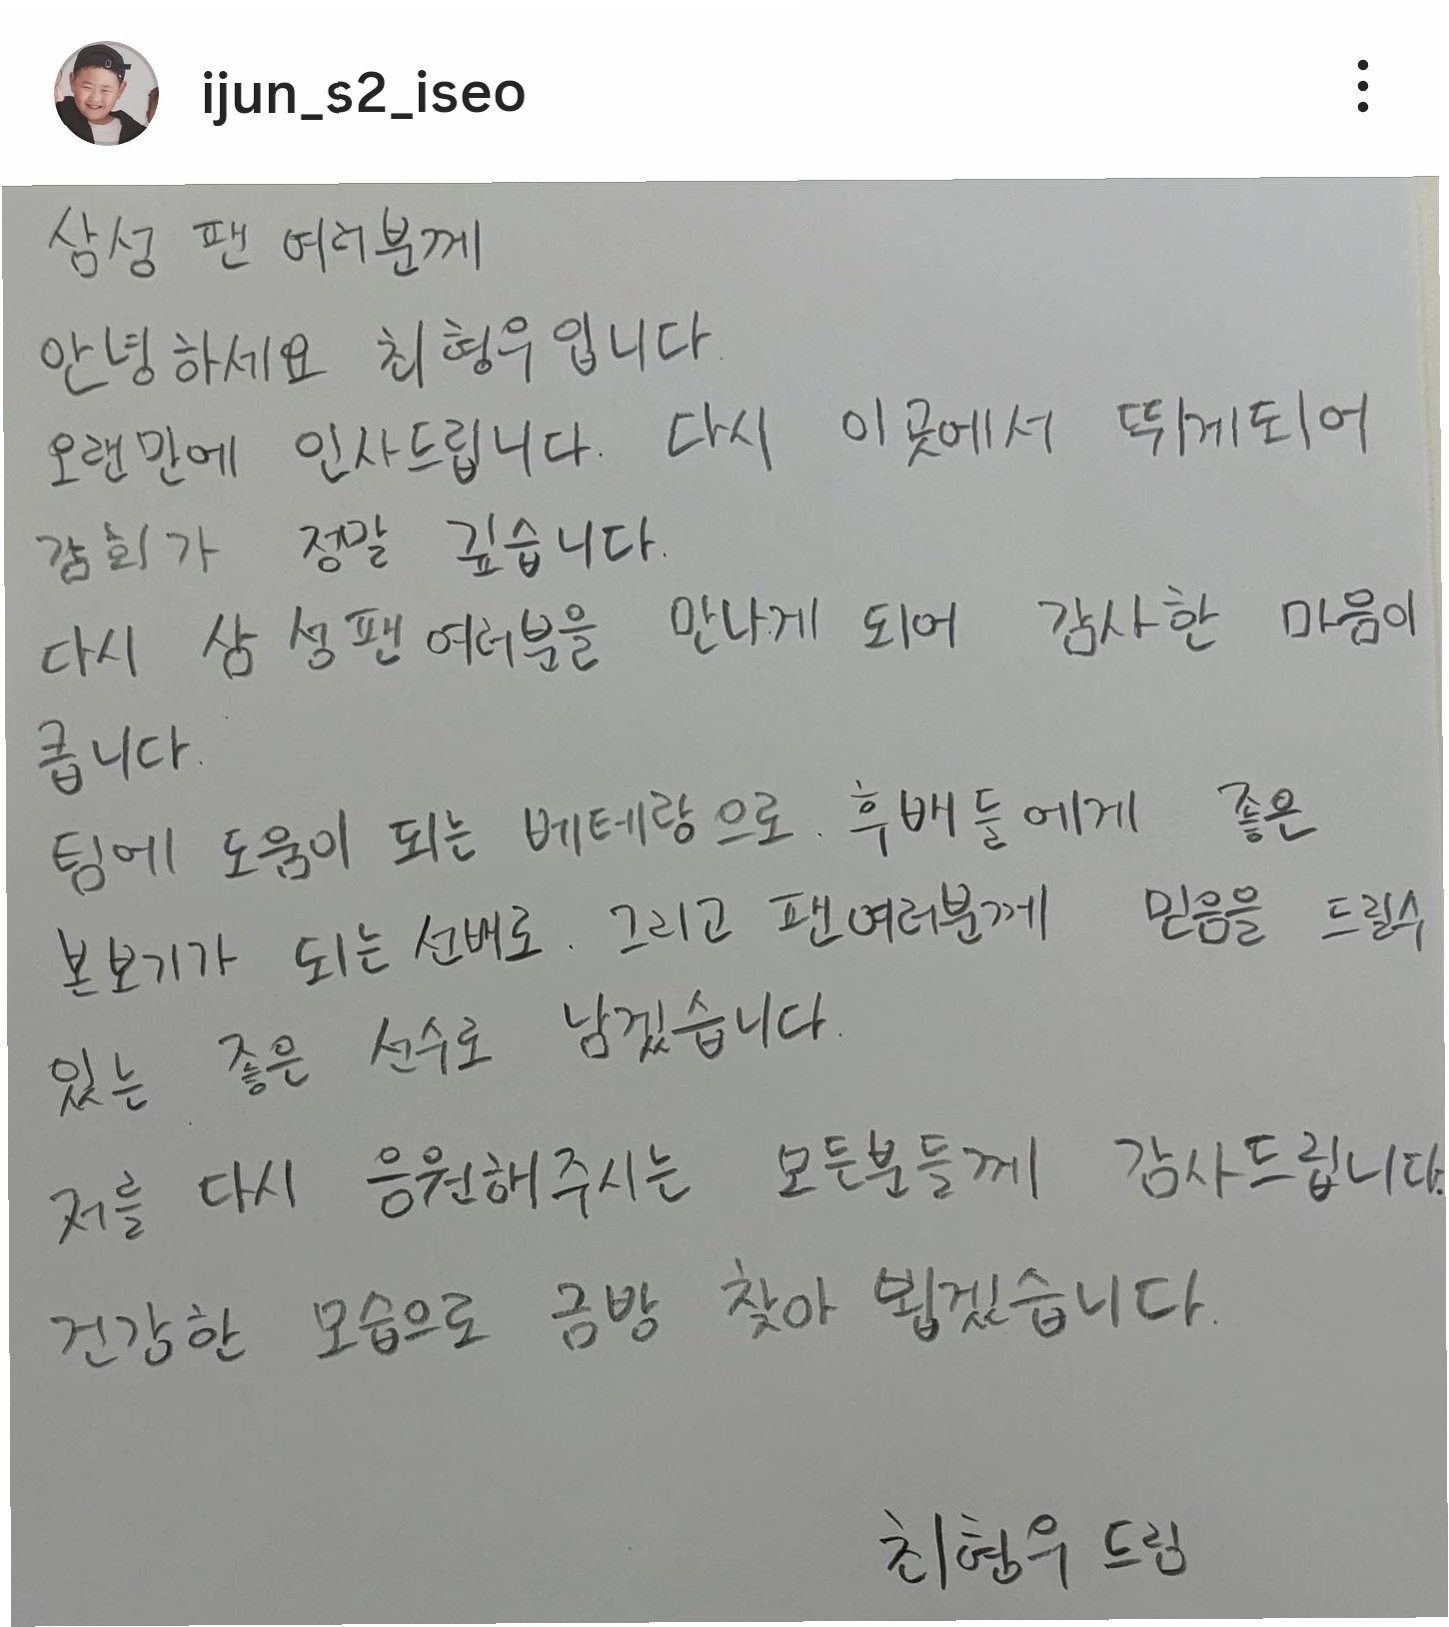 ijun_s2_iseo
삼성 팬 여러분께
안녕하세요 최형우입니다.
오랜만에 인사드립니다. 다시 이곳에서 뛰게되어
감회가 정말 깊습니다.
다시 삼성팬 여러분을 만나게 되어 감사한 마음이
큽니다.
팀에 도움이 되는 베테랑으로. 후배들에게 좋은
본보기가 되는 선배로. 그리고 팬여러분께 믿음을 드릴수
있는 좋은 선수로 남겠습니다.
저를 다시 응원해주시는 모든분들께 감사드립니다.
건강한 모습으로 금방 찾아 뵙겠습니다.
최형우 드림